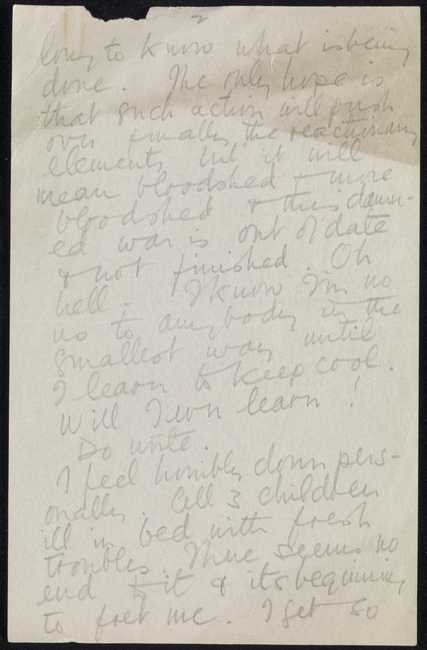 2
long to know what is being
done. The only hope is
that such action will push
over finally the reactionary
elements but it will
mean bloodshed & more
bloodshed & this damn-
ed war is out of date
& not finished. Oh
hell - I know I'm no
us to anybody in the
smallest way until
I learn to keep cool.
Will I ever learn!
Do write.
I feel horribly down pers-
onally. All 3 children
ill in bed with fresh
troubles. There seems no
end to it & its beginning
to fret me. I get so